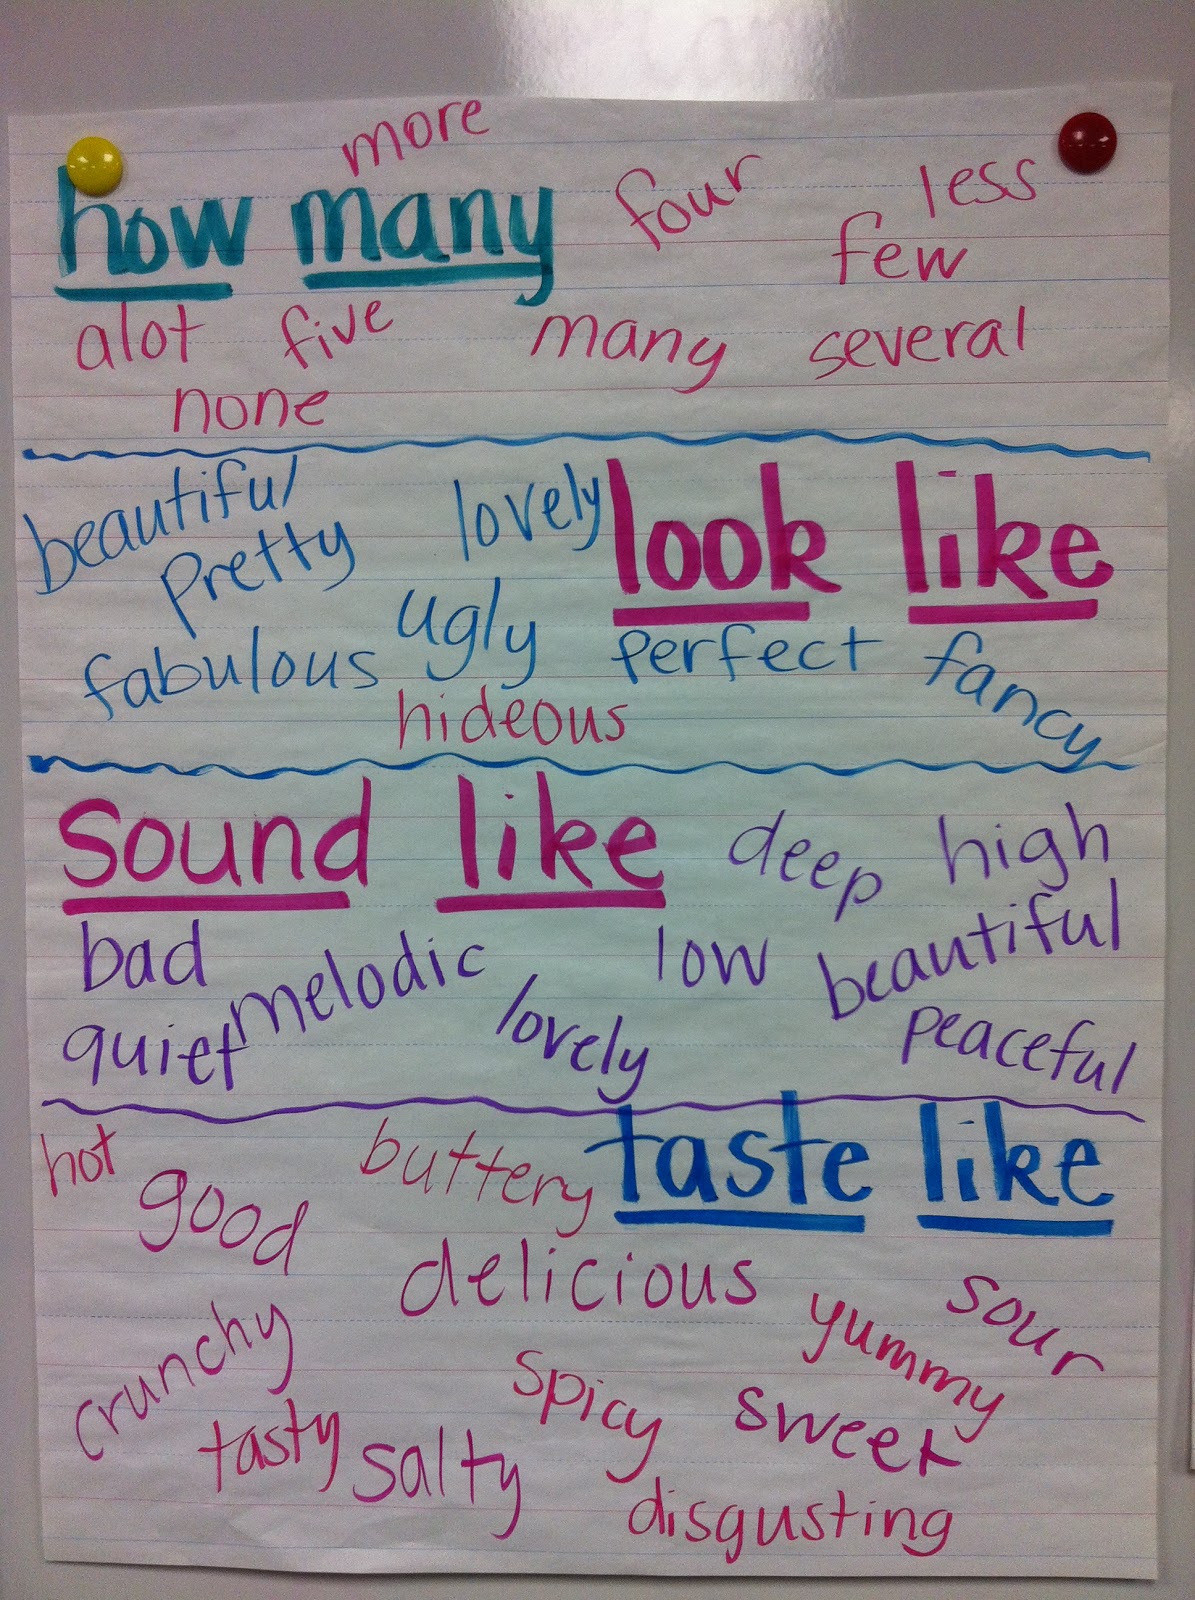 more
how many four less
few
alot five many several
none
beautiful lovely look like
pretty
fabulous ugly perfect fancy
hideous
sound like deep high
bad melodic low beautiful
quiet lovely peaceful
hot buttery taste like
good
delicious sour
crunchy yummy
spicy sweet
tasty salty
disgusting